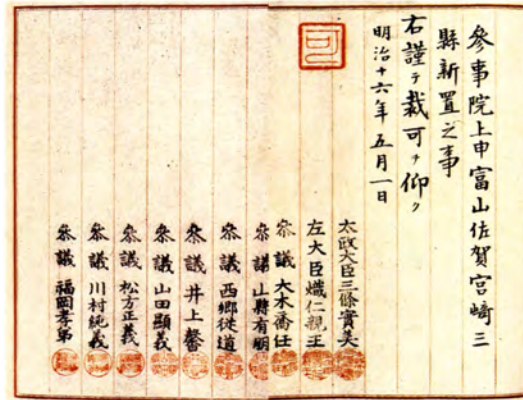 參事院上申富山佐賀宮崎三
縣新置之事
右謹テ裁可ヲ仰ク
明治十六年五月一日
可
太政大臣三條實美
左大臣熾仁親王
參議 大木喬任
參議 山縣有朋
參議 西郷従道
參議 井上馨
參議 山田顯義
參議 松方正義
參議 川村純義
參議 福岡孝弟